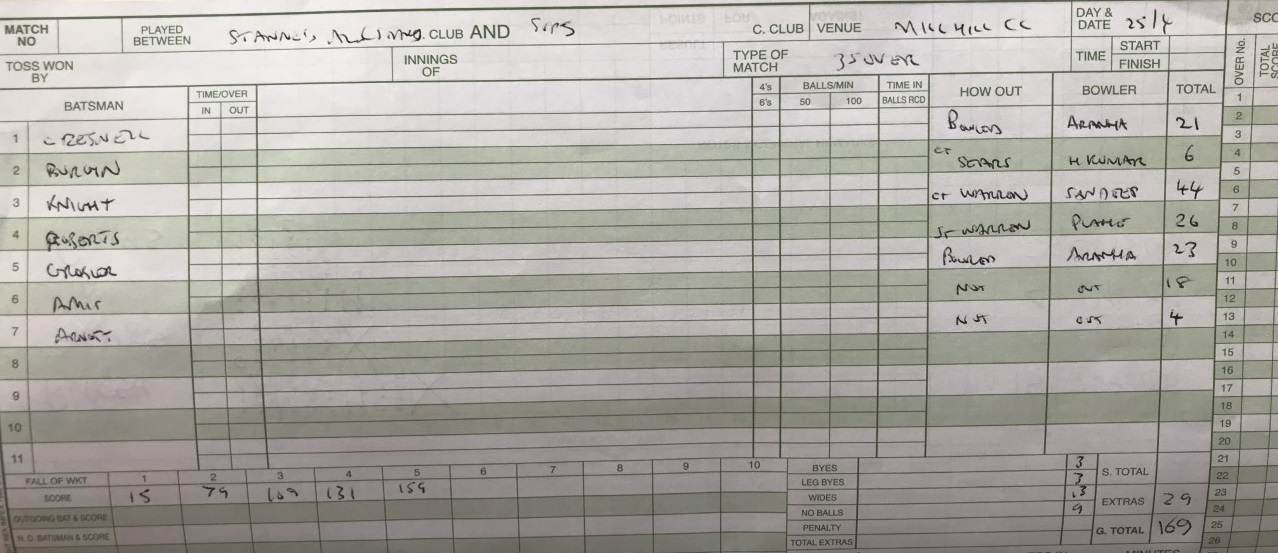 MATCH NO PLAYED BETWEEN STANNES ALLSTARS C. CLUB AND SIPS C. CLUB VENUE MILL HILL CC DAY & DATE 25/4
TOSS WON BY INNINGS OF TYPE OF MATCH 35 OVER TIME START FINISH
OVER No. TOTAL SCORE
BATSMAN TIME/OVER IN OUT 4's 6's BALLS/MIN 50 100 TIME IN BALLS RCD HOW OUT BOWLER TOTAL
1 CRESWELL BOWLED ARANHA 21
2 BURVIN CT SEARS H KUMAR 6
3 KNIGHT CT WARREN SANDEEP 44
4 ROBERTS ST WARREN 26
5 BOWLED ARANHA 23
6 AMIT NOT OUT 18
7 NOT OUT 4
8
9
10
11
FALL OF WKT 1 2 3 4 5 6 7 8 9 10
SCORE 15 79 109 131 159
OUTGOING BAT & SCORE
N. O. BATSMAN & SCORE
BYES 3
LEG BYES 3
WIDES 13
NO BALLS 9
PENALTY
TOTAL EXTRAS
S. TOTAL
EXTRAS 29
G. TOTAL 169
1
2
3
4
5
6
7
8
9
10
11
12
13
14
15
16
17
18
19
20
21
22
23
24
25
26